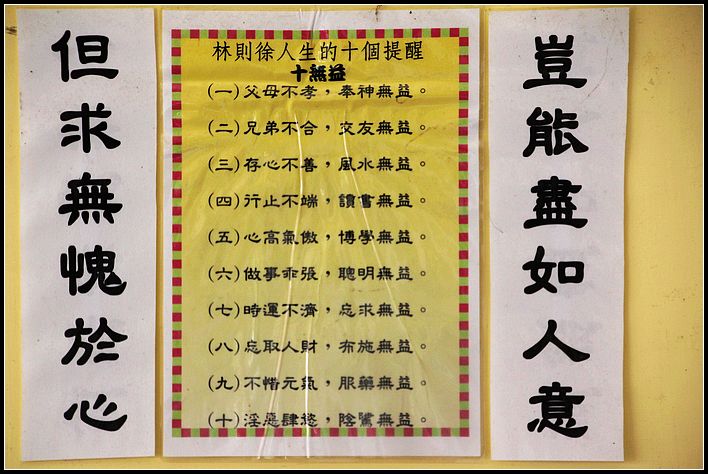 豈能盡如人意
林則徐人生的十個提醒
十無益
(一)父母不孝，奉神無益。
(二)兄弟不合，交友無益。
(三)存心不善，風水無益。
(四)行止不端，讀書無益。
(五)心高氣傲，博學無益。
(六)做事乖張，聰明無益。
(七)時運不濟，忘求無益。
(八)忘取人財，布施無益。
(九)不惜元氣，服藥無益。
(十)淫惡肆慾，陰騭無益。
但求無愧於心